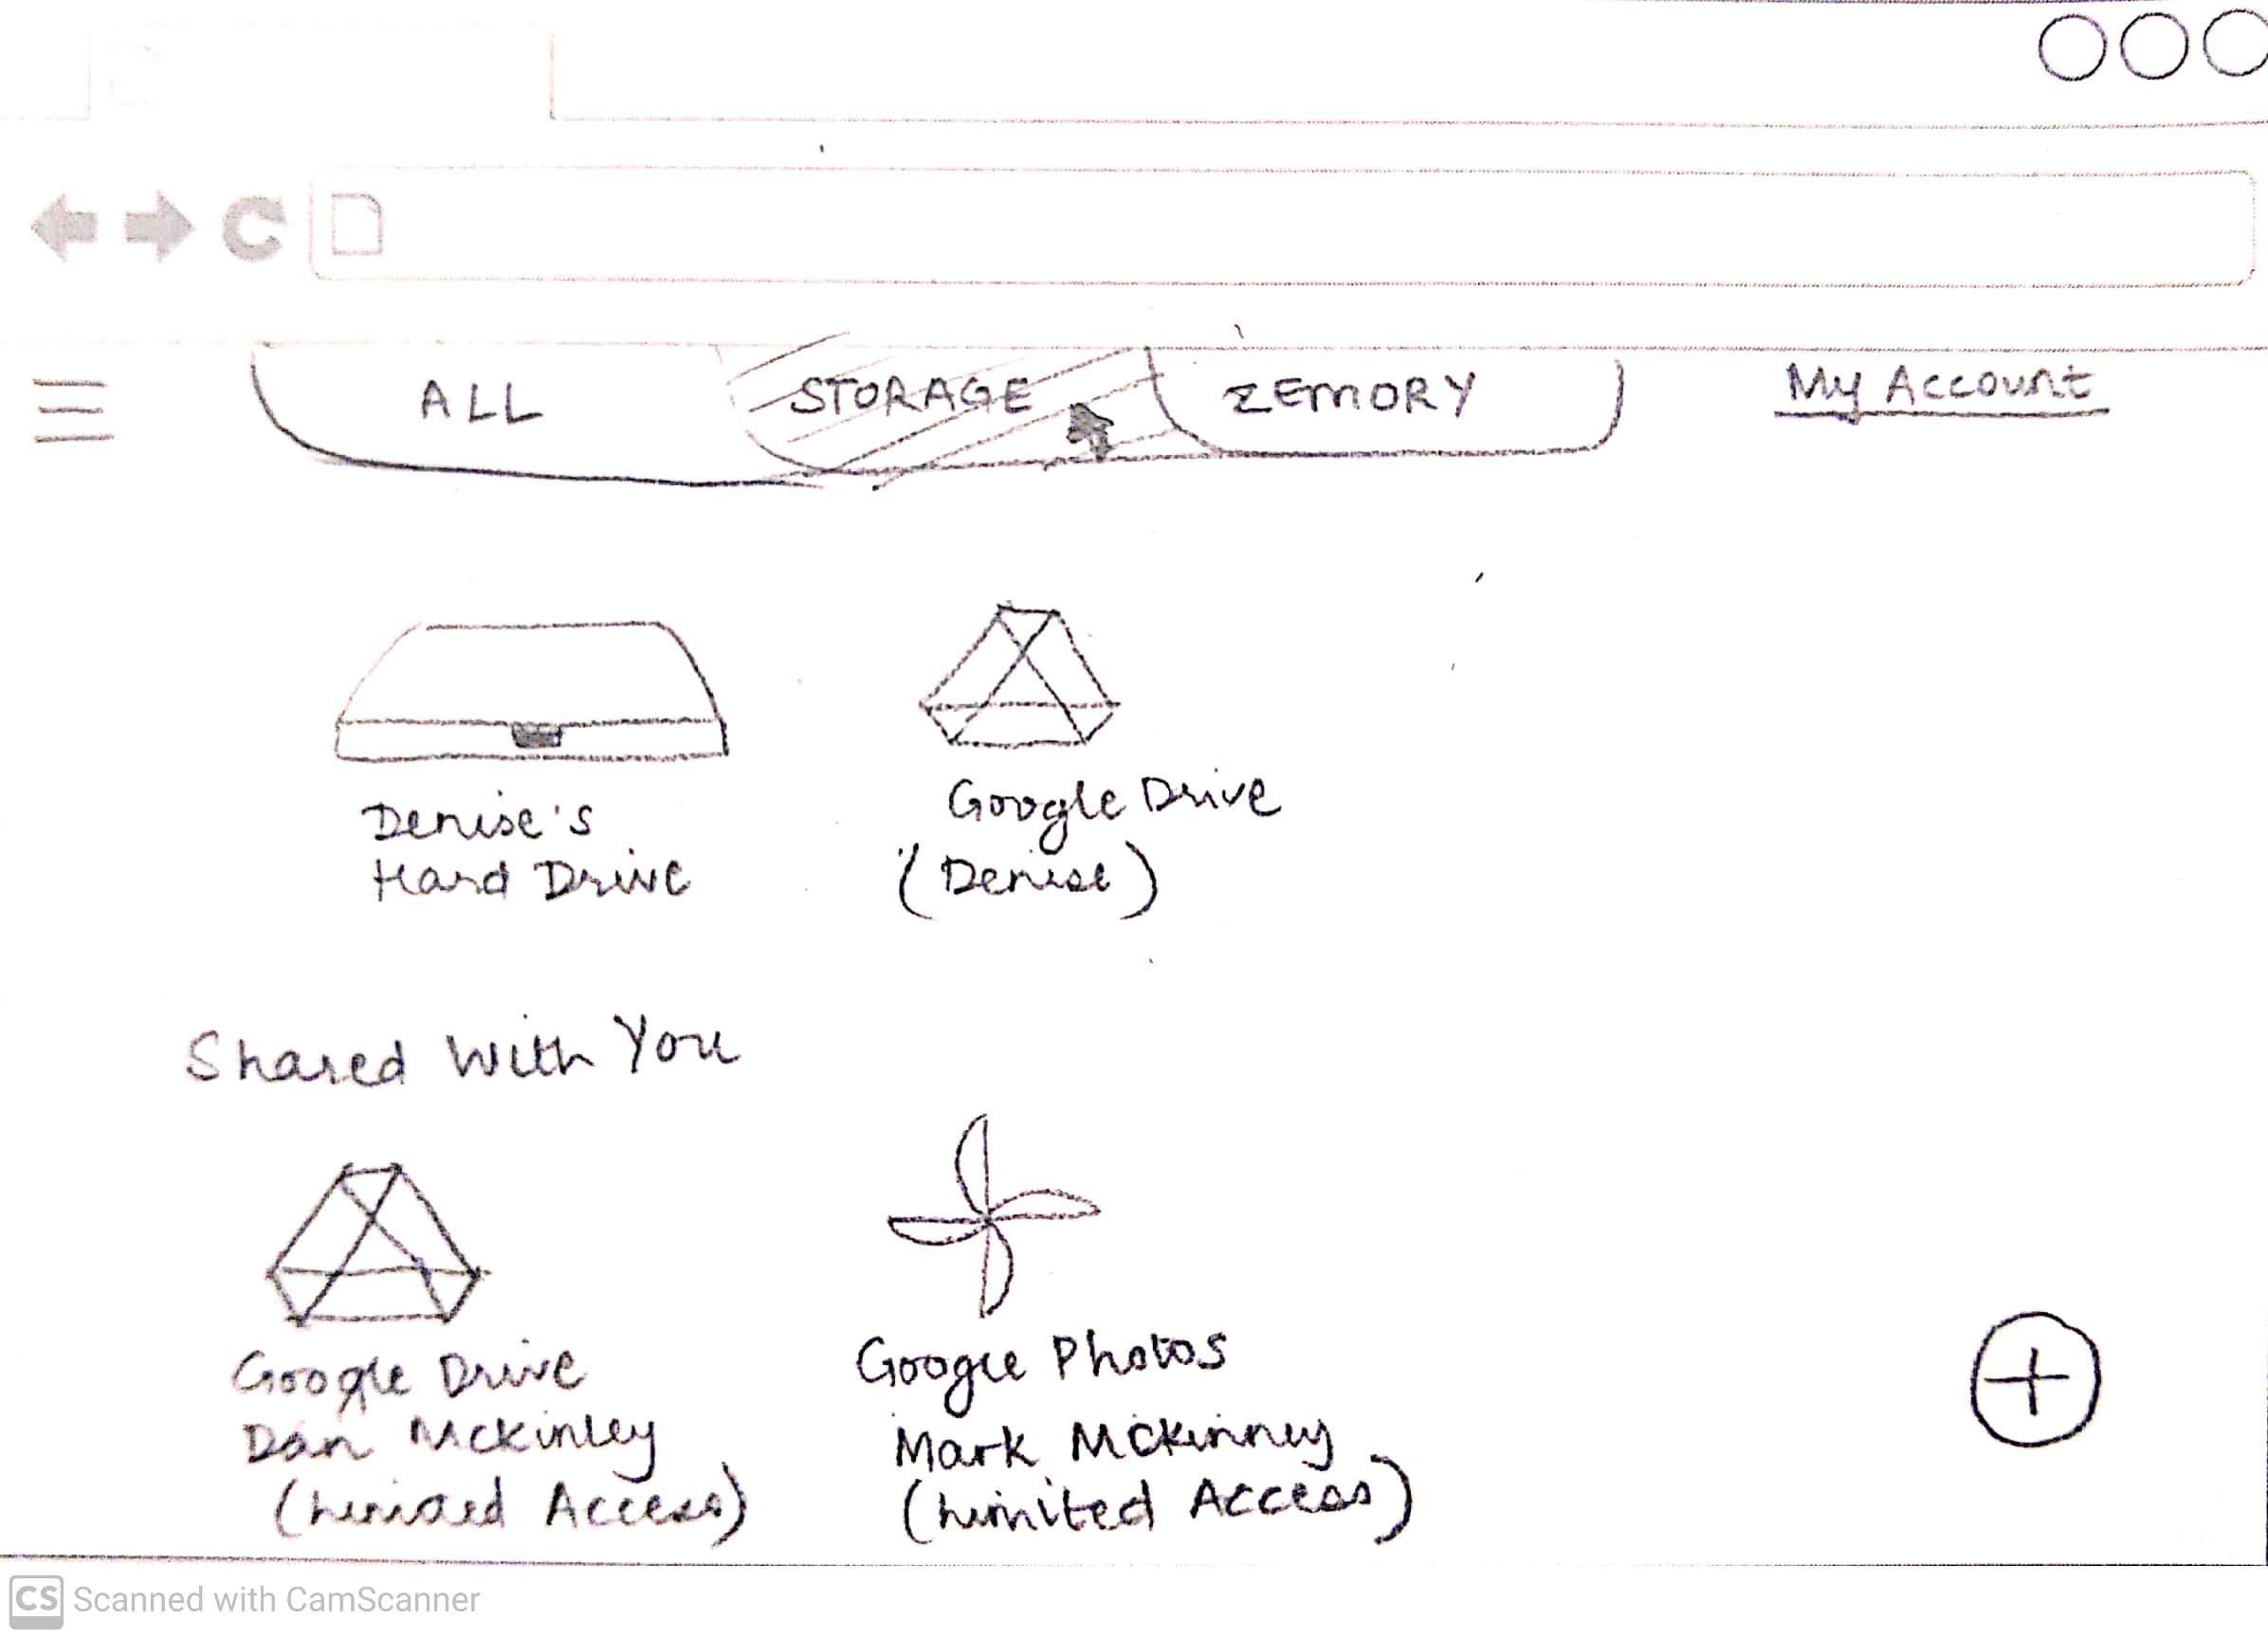 ALL STORAGE ZEMORY My Account
Denise's
Hard Drive
Google Drive
(Denise)
Shared With You
Google Drive
Dan Mckinley
(Limited Access)
Google Photos
Mark Mckinney
(Limited Access)
CS Scanned with CamScanner